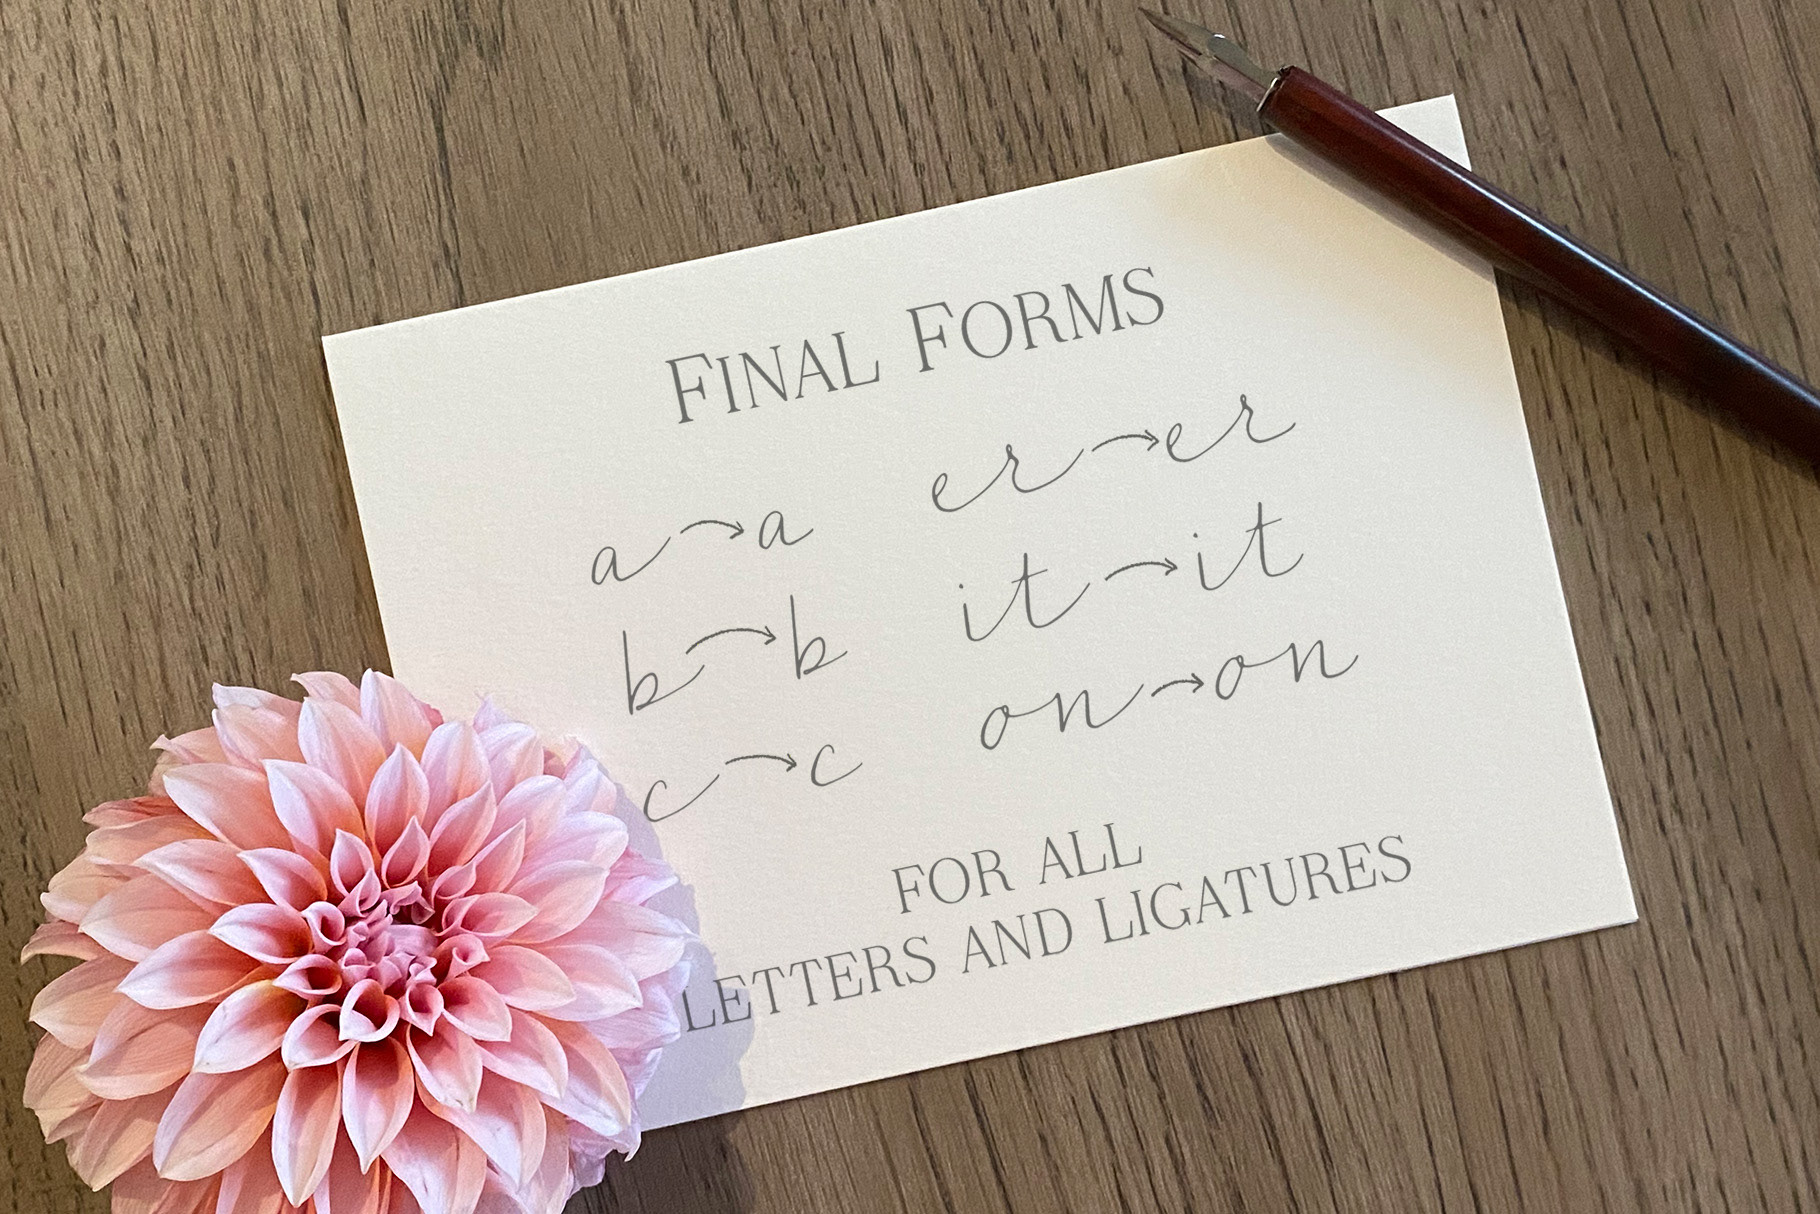 FINAL FORMS
a→a
b→b
c→c
er→er
it→it
on→on
FOR ALL
LETTERS AND LIGATURES